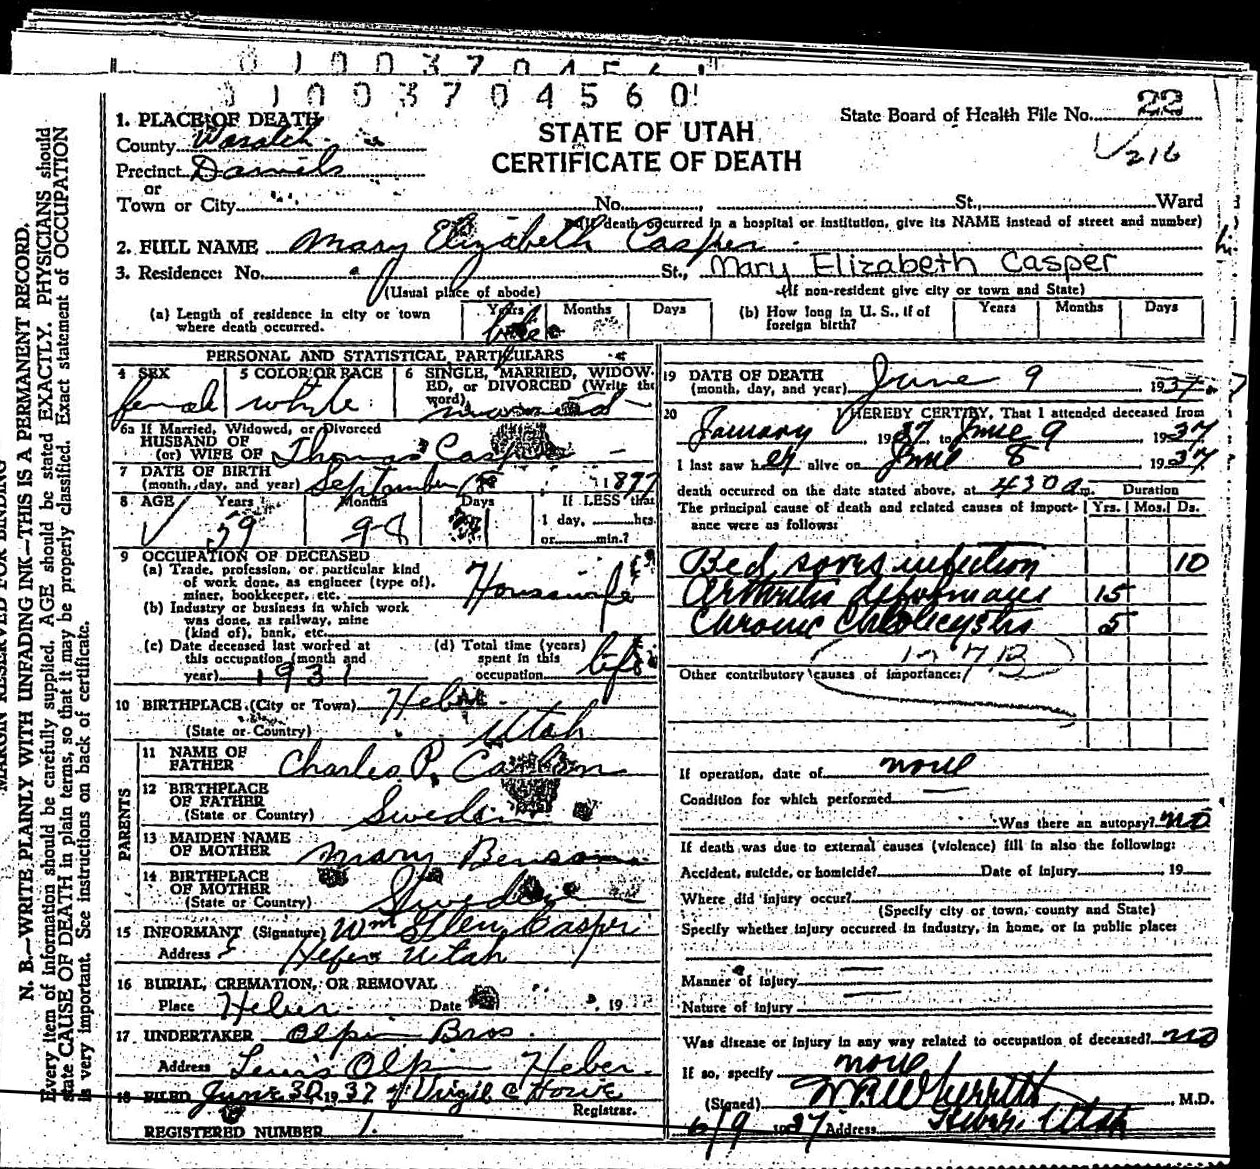 0 1 0 0 3 7 0 4 5 6
0 1 0 0 3 7 0 4 5 6 0
State Board of Health File No. 22
216
STATE OF UTAH
CERTIFICATE OF DEATH
1. PLACE OF DEATH
County Wasatch
Precinct Daniels
or
Town or City No. St., Ward
(If death occurred in a hospital or institution, give its NAME instead of street and number)
2. FULL NAME Mary Elizabeth Casper
3. Residence: No. St., Mary Elizabeth Casper
(Usual place of abode) (If non-resident give city or town and State)
(a) Length of residence in city or town where death occurred. Years Months Days
life
(b) How long in U. S., if of foreign birth? Years Months Days
PERSONAL AND STATISTICAL PARTICULARS
4 SEX 5 COLOR OR RACE 6 SINGLE, MARRIED, WIDOWED, or DIVORCED (Write the word)
female white married
6a If Married, Widowed, or Divorced
HUSBAND OF
(or) WIFE OF Thomas Casper
7 DATE OF BIRTH
(month, day, and year) September 1 1877
8 AGE Years Months Days If LESS than
59 9-8 1 day, hrs.
or min.?
9 OCCUPATION OF DECEASED
(a) Trade, profession, or particular kind
of work done, as engineer (type of),
miner, bookkeeper, etc. Housewife
(b) Industry or business in which work
was done, as railway, mine
(kind of), bank, etc.
(c) Date deceased last worked at
this occupation (month and
year) 1931
(d) Total time (years)
spent in this
occupation life
10 BIRTHPLACE (City or Town) Heber
(State or Country) Utah
PARENTS
11 NAME OF
FATHER Charles P.
12 BIRTHPLACE
OF FATHER
(State or Country) Sweden
13 MAIDEN NAME
OF MOTHER Mary Benson
14 BIRTHPLACE
OF MOTHER
(State or Country) Sweden
15 INFORMANT (Signature) Wm Glen Casper
Address Heber Utah
16 BURIAL, CREMATION, OR REMOVAL
Place Heber Date , 19
17 UNDERTAKER Olpin Bros.
Address Lewis Olpin Heber
18 FILED June 30, 1937 Virgil C Howe
Registrar.
REGISTERED NUMBER 1.
19 DATE OF DEATH
(month, day, and year) June 9 1937
20 I HEREBY CERTIFY, That I attended deceased from
January 1937 to June 9 1937
I last saw her alive on June 8 1937
death occurred on the date stated above, at 4 30 a m. Duration
The principal cause of death and related causes of importance were as follows: Yrs. Mos. Ds.
Bed sores infection 10
Arthritis deformans 15
Chronic Cholecystis 5
Other contributory causes of importance:
If operation, date of none
Condition for which performed
Was there an autopsy? no
If death was due to external causes (violence) fill in also the following:
Accident, suicide, or homicide? Date of injury 19
Where did injury occur?
(Specify city or town, county and State)
Specify whether injury occurred in industry, in home, or in public place:
Manner of injury
Nature of injury
Was disease or injury in any way related to occupation of deceased? no
If so, specify none
(Signed) M.D.
6/9 1937 Address Heber, Utah
MARGIN RESERVED FOR BINDING
N. B.—WRITE PLAINLY WITH UNFADING INK—THIS IS A PERMANENT RECORD.
Every item of information should be carefully supplied. AGE should be stated EXACTLY. PHYSICIANS should
state CAUSE OF DEATH in plain terms, so that it may be properly classified. Exact statement of OCCUPATION
is very important. See instructions on back of certificate.